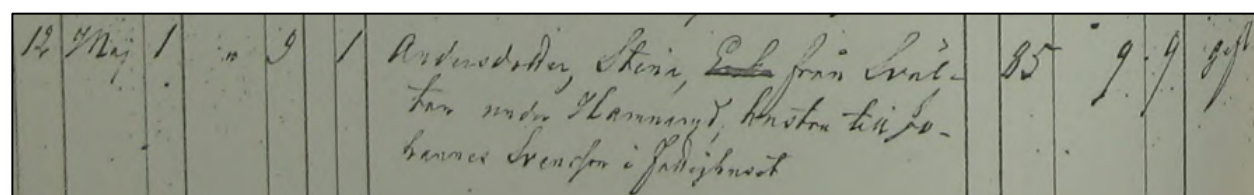 12 Maj 1 " 9 1 Andersdotter, Stina, Enk. från Sväl- 85 9 9 gift
tan under Hamnaryd, hustru till Jo-
hannes Svensson i Fattighuset